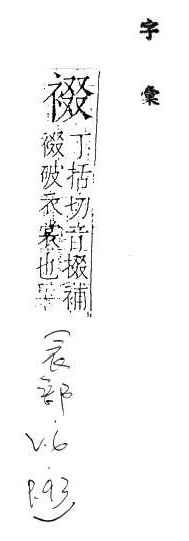 字彙
裰
丁括切音掇補
裰破衣裳也
(衣部
V.6
P.93)